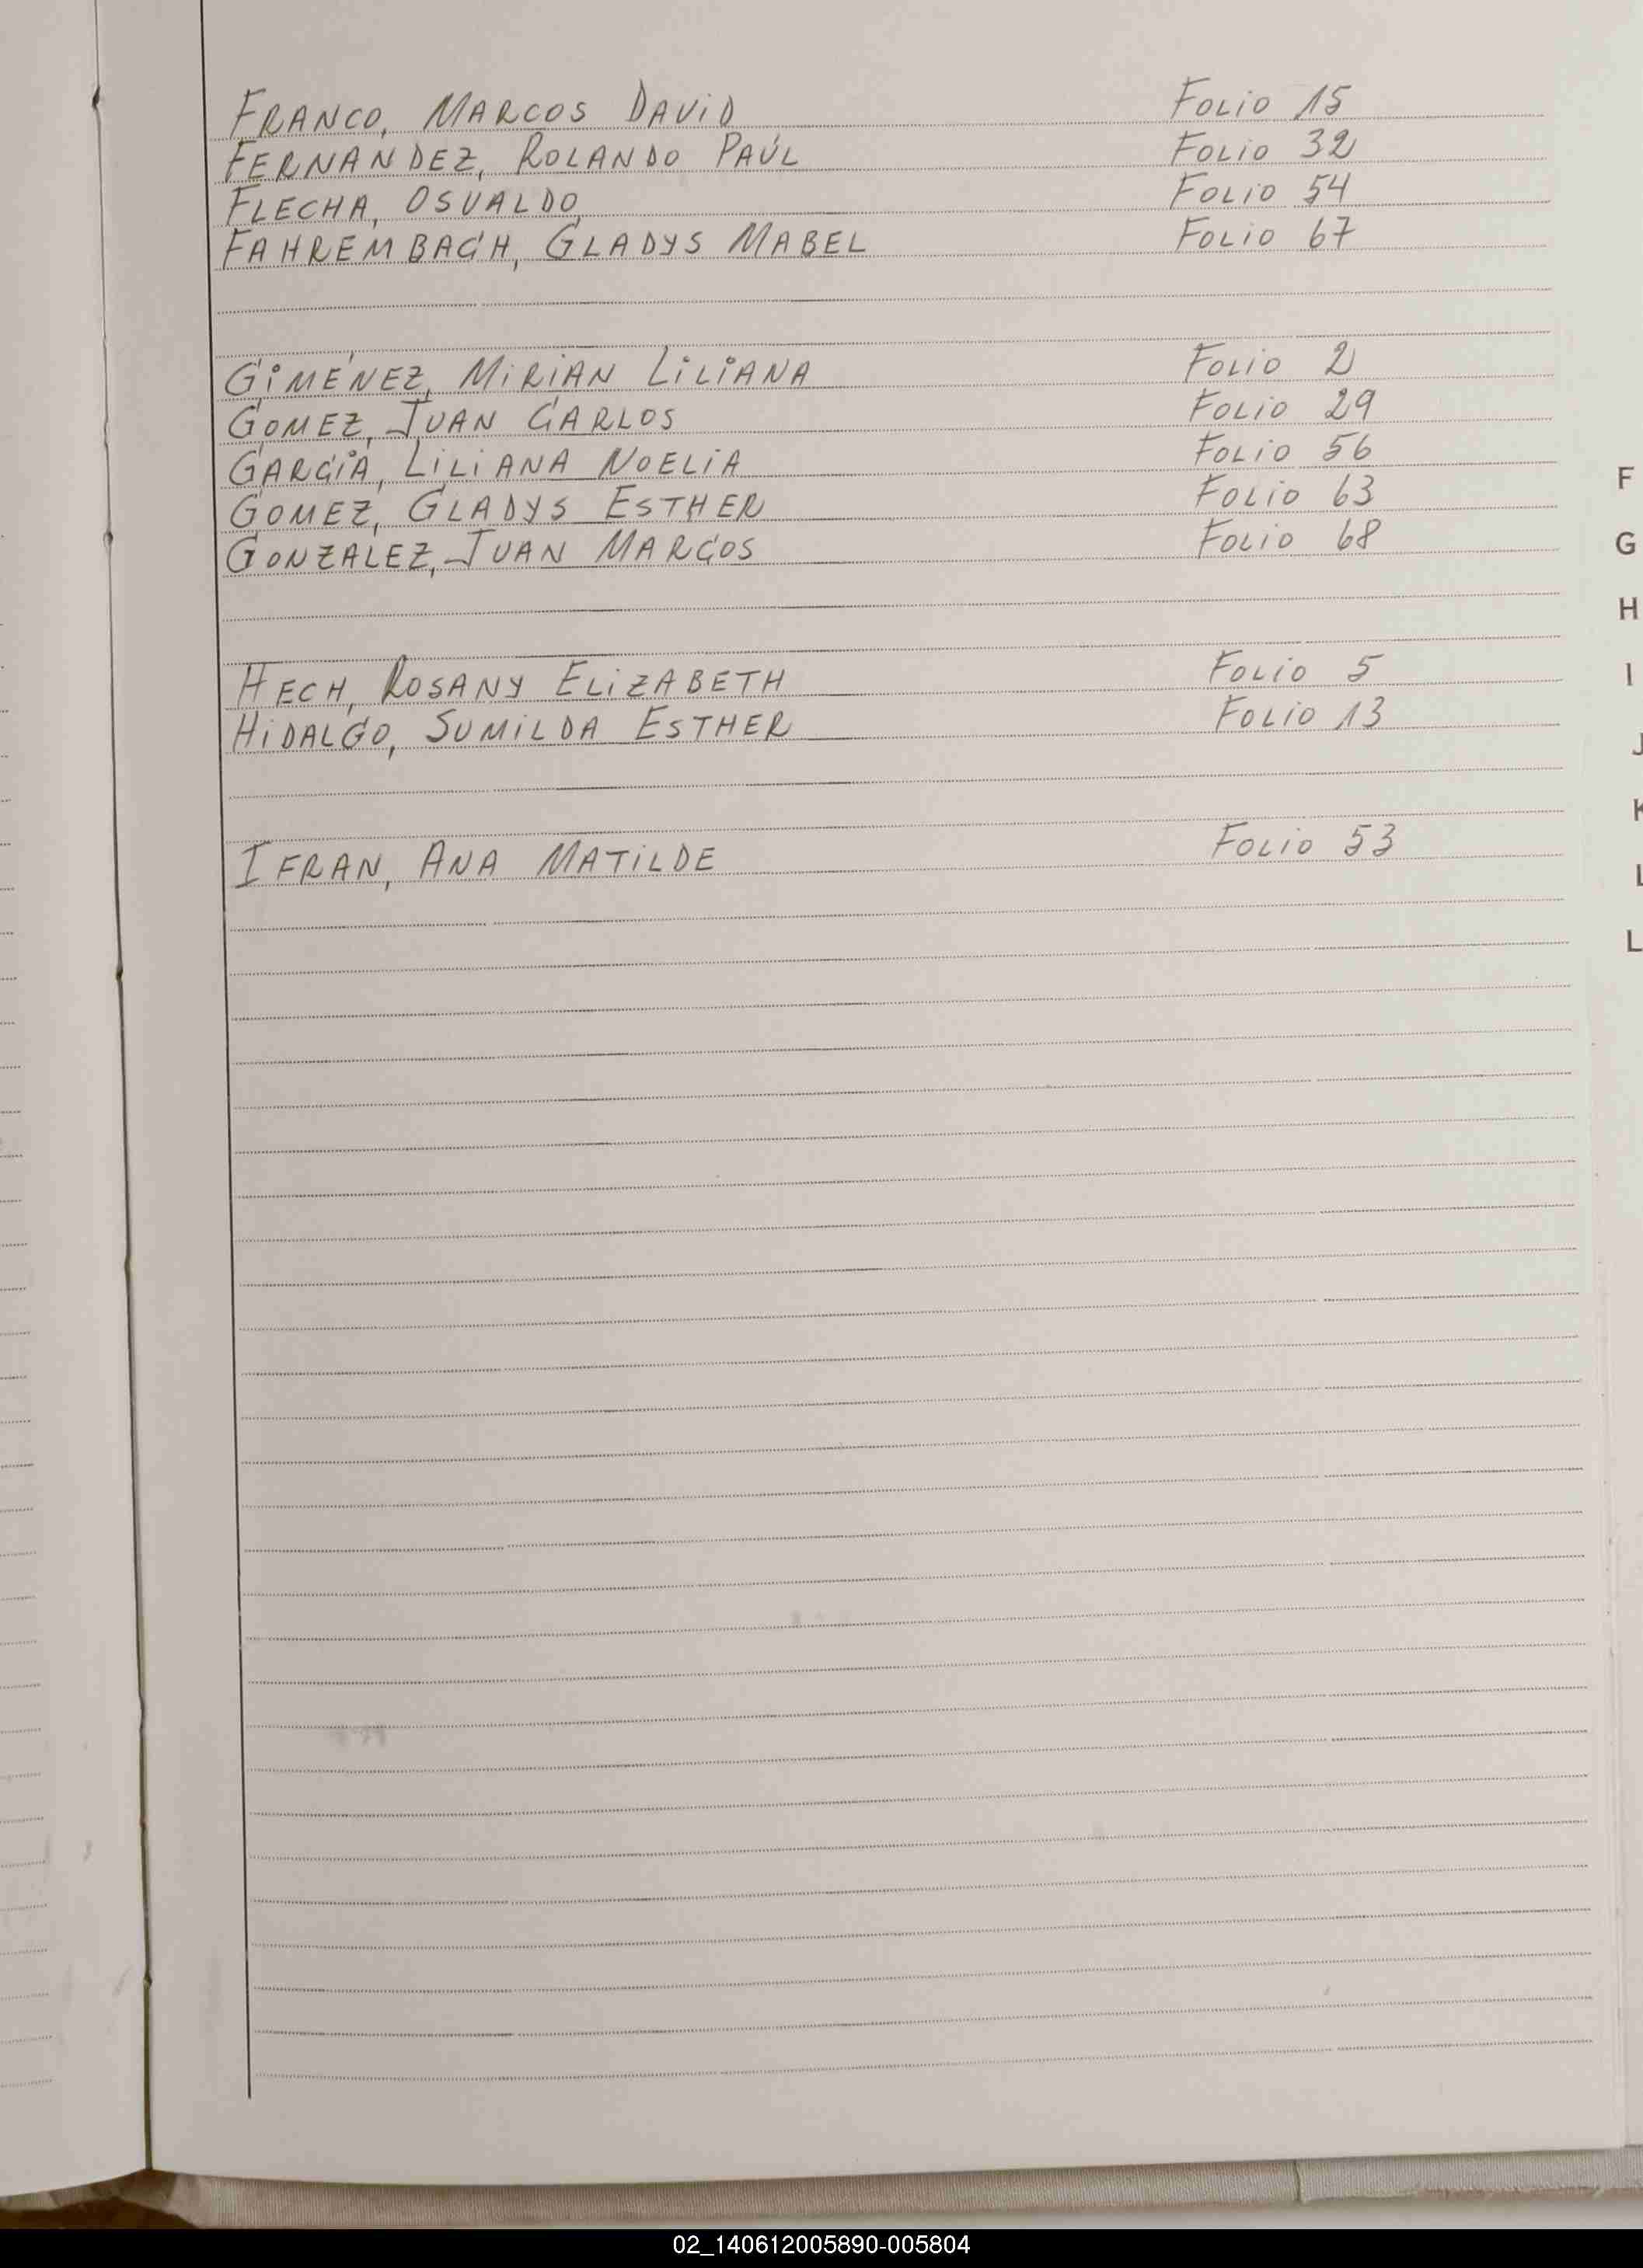 FRANCO, MARCOS DAVID Folio 15
FERNANDEZ, ROLANDO PAÚL Folio 32
FLECHA, OSVALDO Folio 54
FAHREMBACH, GLADYS MABEL Folio 67
GIMÉNEZ, MIRIAN LILIANA Folio 2
GOMEZ, JUAN CARLOS Folio 29
GARCÍA, LILIANA NOELIA Folio 56
GOMEZ, GLADYS ESTHER Folio 63
GONZALEZ, JUAN MARCOS Folio 68
HECH, ROSANY ELIZABETH Folio 5
HIDALGO, SUMILDA ESTHER Folio 13
IFRAN, ANA MATILDE Folio 53
F
G
H
I
J
K
L
L
02_140612005890-005804